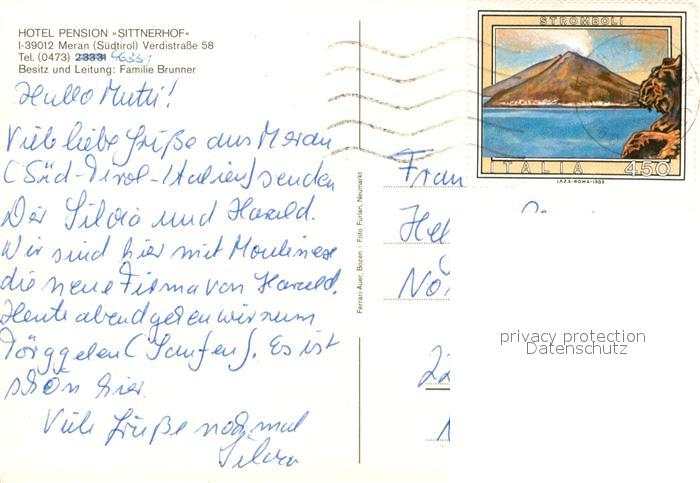 HOTEL PENSION »SITTNERHOF«
I-39012 Meran (Südtirol) Verdistraße 58
Tel. (0473) 23331 46331
Besitz und Leitung: Familie Brunner
Hallo Mutti!
Viele liebe Grüße aus Meran
(Süd-Tirol-Italien) senden
Dir Silvia und Harald.
Wir sind hier mit Moulinex
die neue Firma von Harald.
Heute abend gehen wir zum
Törggelen (Saufen). Es ist
schön hier.
Viele Grüße nochmal
Silvia
Ferrari-Auer, Bozen - Foto Furlan, Neumarkt
STROMBOLI
ITALIA 450
I.P.Z.S.-ROMA-1983
Frau
Hel
Nö
22
privacy protection
Datenschutz